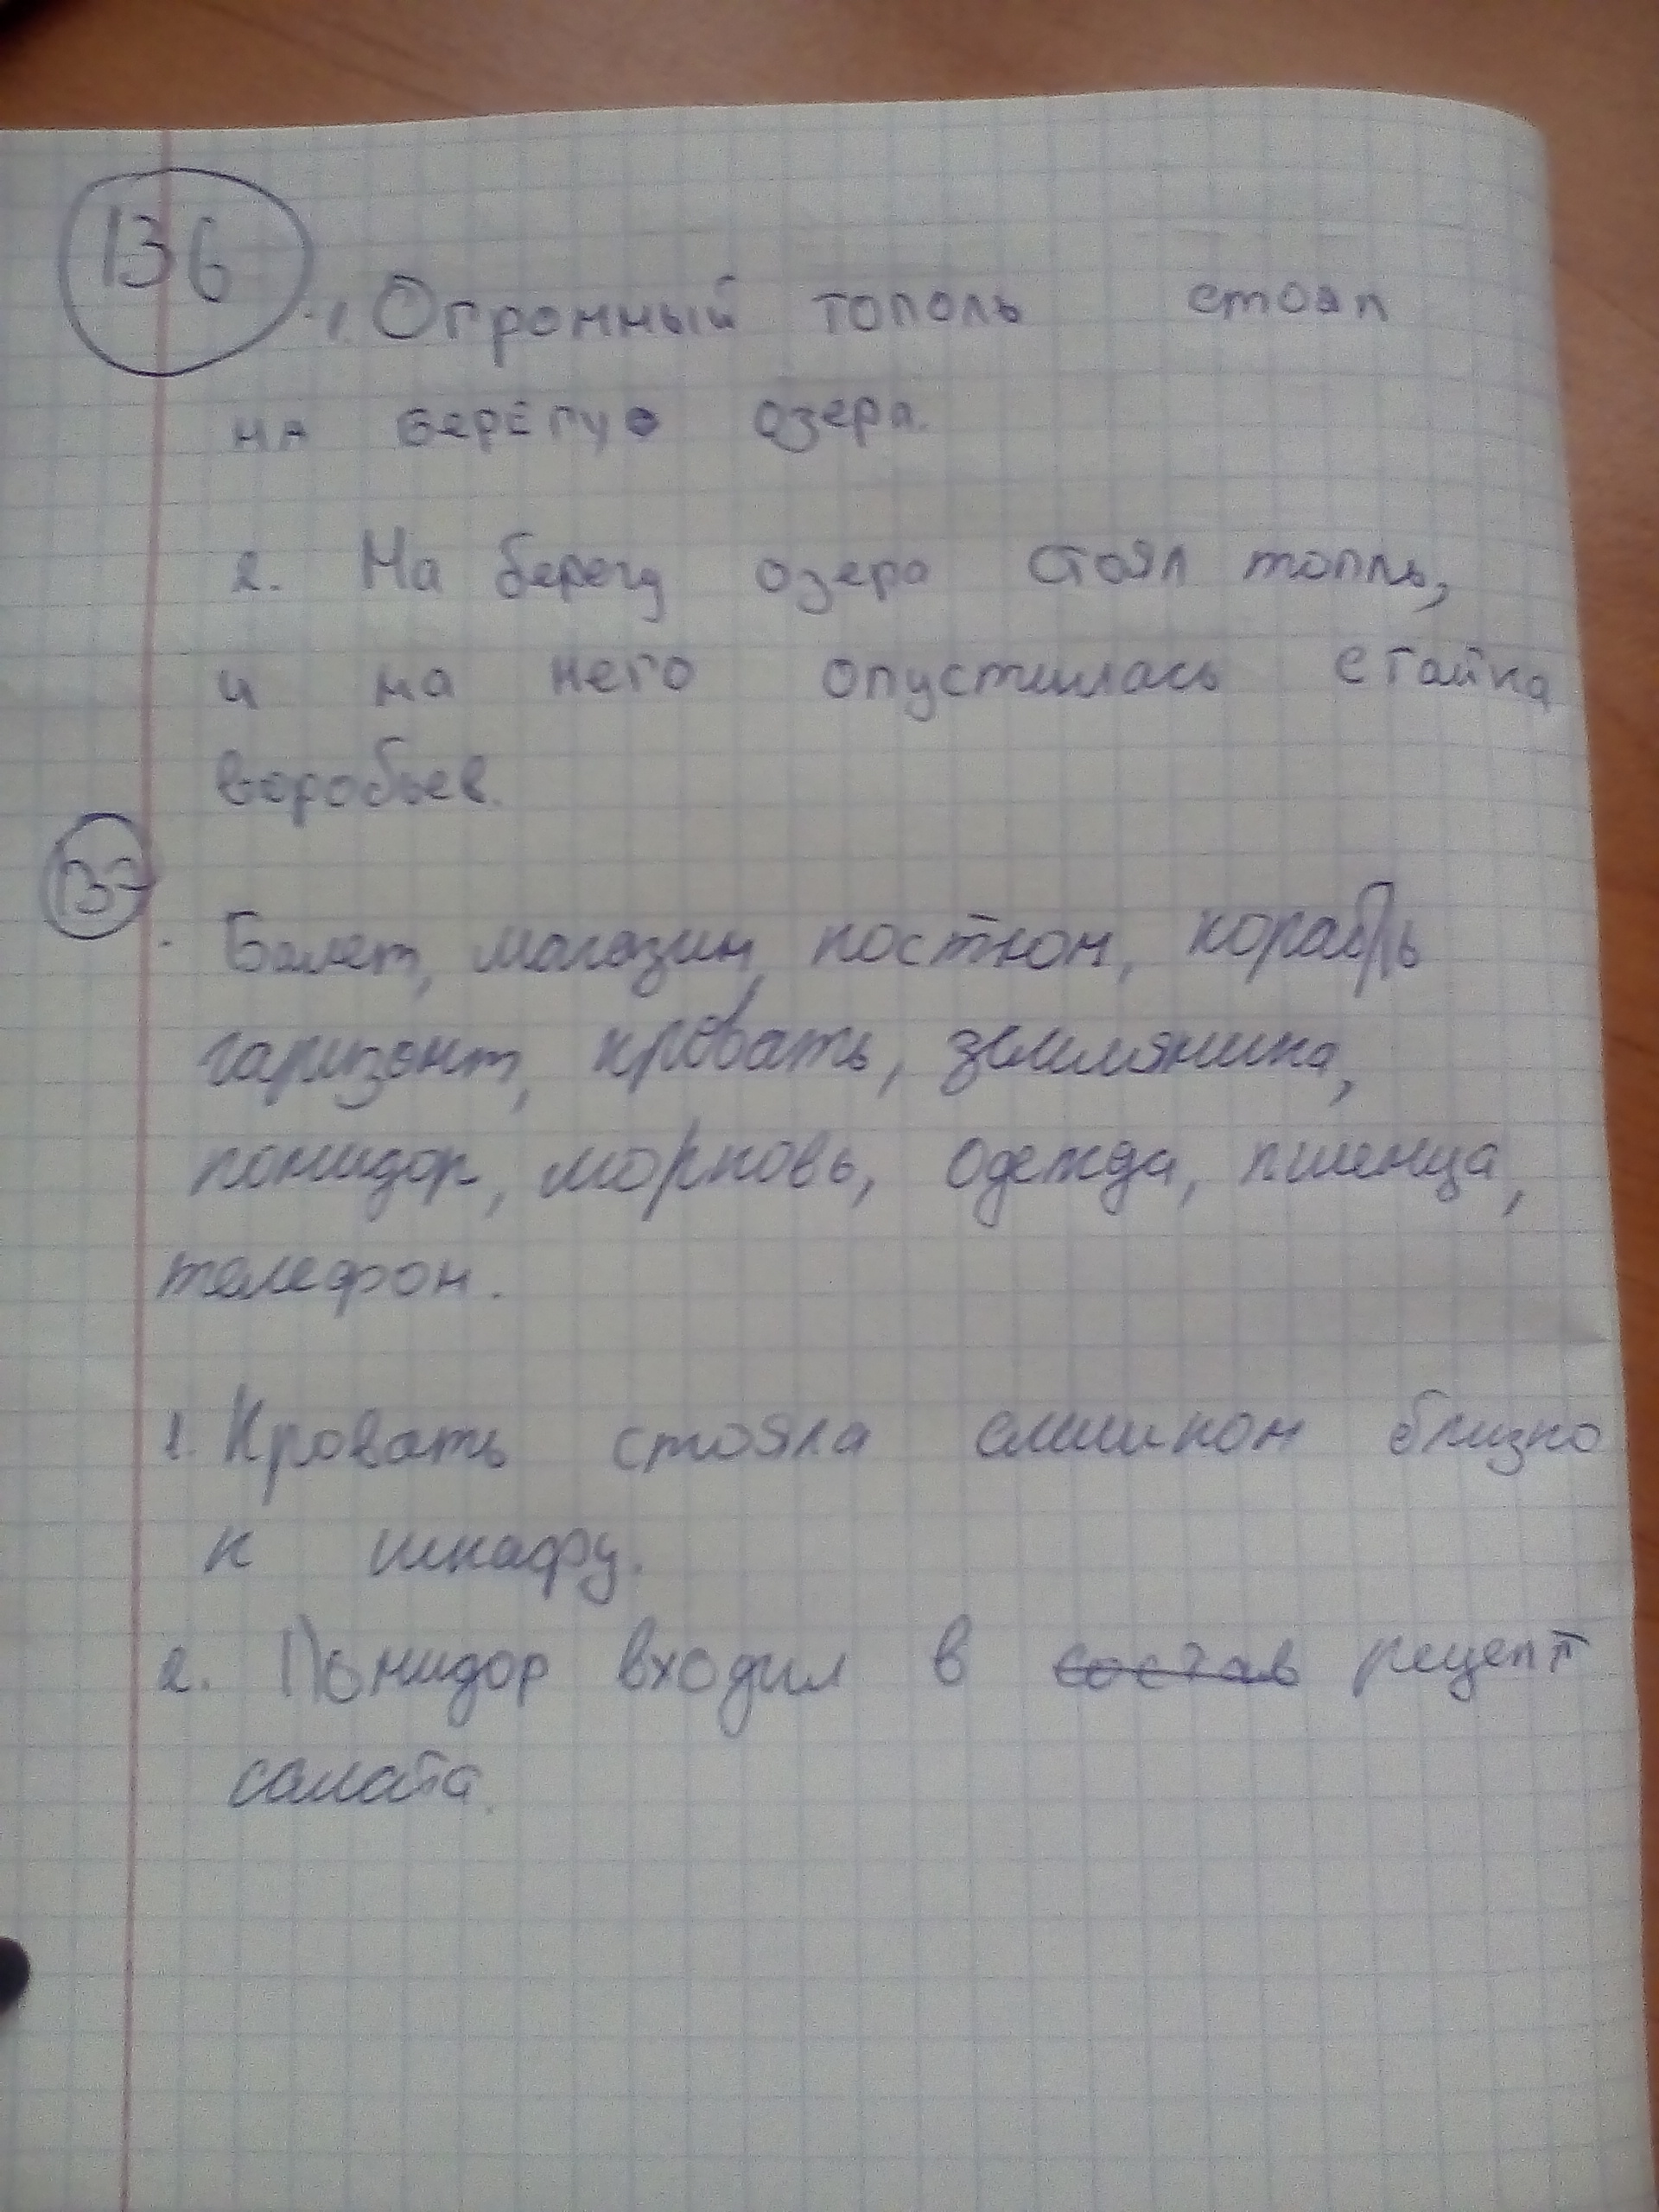 136
1. Огромный тополь стоял
на берегу озера.
2. На берегу озера стоял топль,
и на него опустилась стайка
воробьев.
137
Балет, магазин, костюм, корабль
гаризонт, кровать, земляника,
помидор, морковь, одежда, пшеница,
телефон.
1. Кровать стояла слишком близко
к шкафу.
2. Помидор входил в состав рецепт
салата.